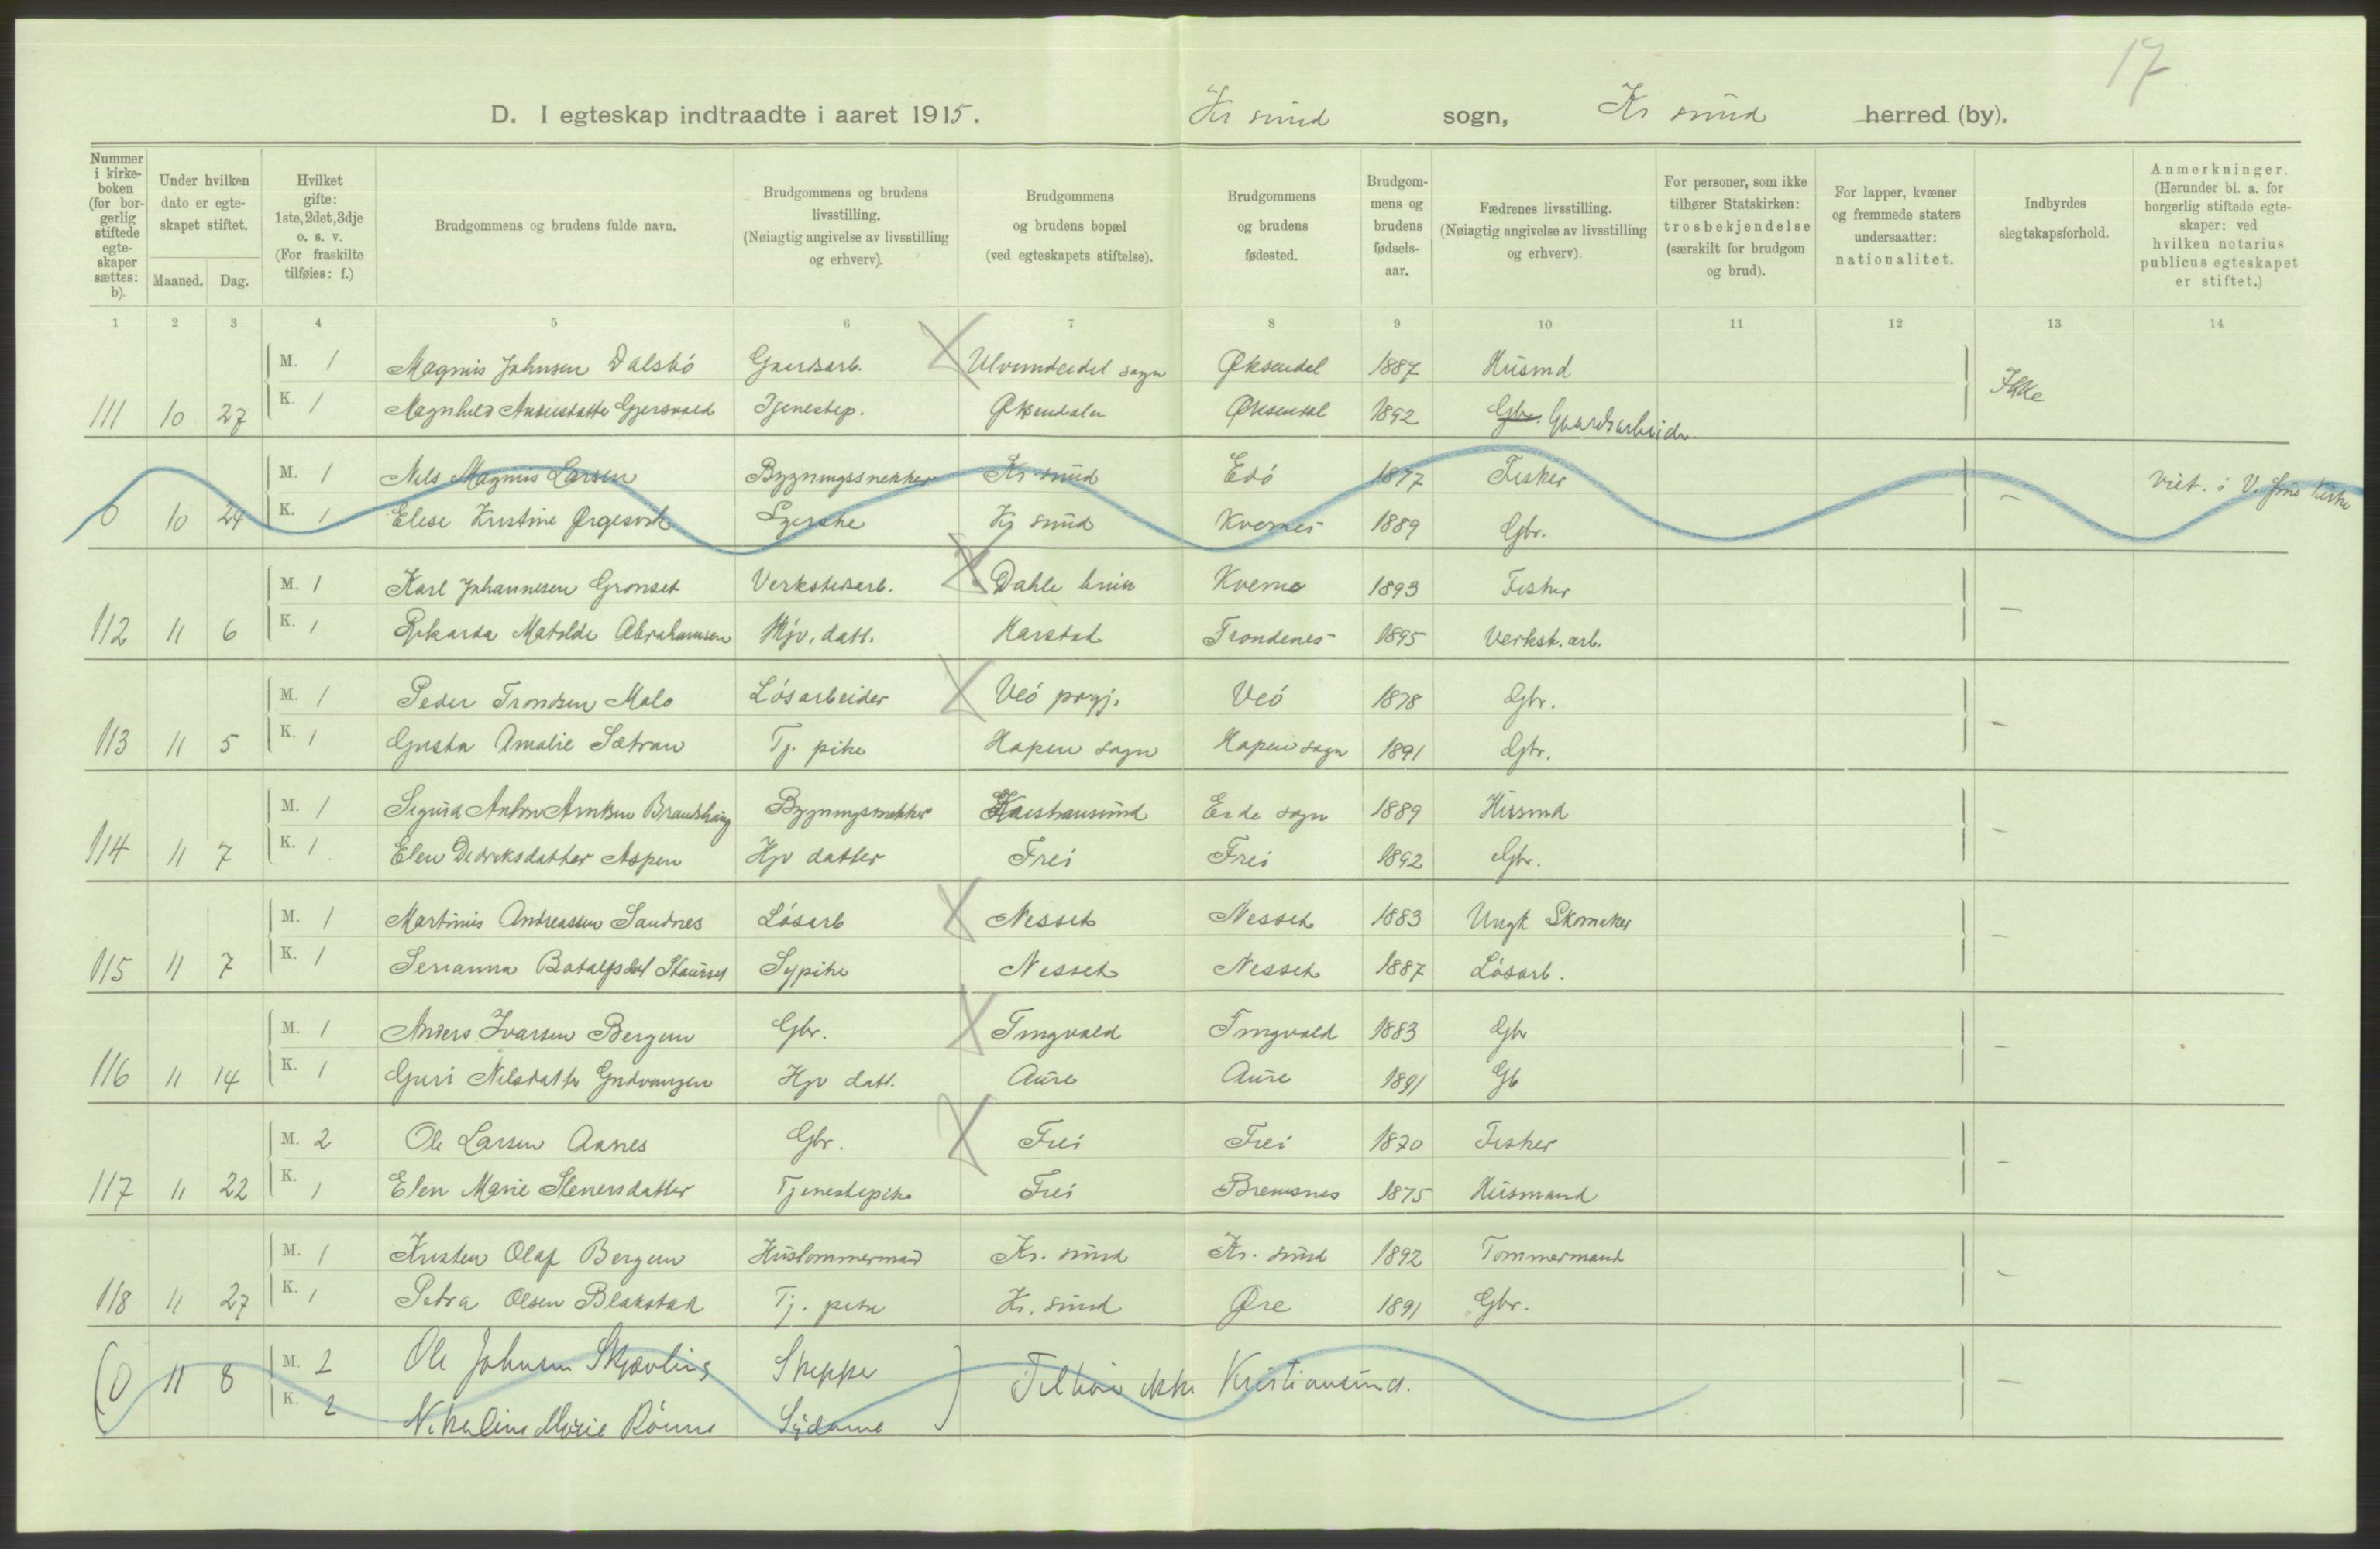 17
D. I egteskap indtraadte i aaret 1915. Kr sund sogn, Kr sund herred (by).
Nummer i kirkeboken (for borgerlig stiftede egteskaper sættes: b).
Under hvilken dato er egteskapet stiftet.
Maaned. Dag.
Hvilket gifte: 1ste, 2det, 3dje o. s. v. (For fraskilte tilføies: f.)
Brudgommens og brudens fulde navn.
Brudgommens og brudens livsstilling. (Nøiagtig angivelse av livsstilling og erhverv).
Brudgommens og brudens bopæl (ved egteskapets stiftelse).
Brudgommens og brudens fødested.
Brudgommens og brudens fødselsaar.
Fædrenes livsstilling. (Nøiagtig angivelse av livsstilling og erhverv).
For personer, som ikke tilhører Statskirken: trosbekjendelse (særskilt for brudgom og brud).
For lapper, kvæner og fremmede staters undersaatter: nationalitet.
Indbyrdes slegtskapsforhold.
Anmerkninger. (Herunder bl. a. for borgerlig stiftede egteskaper: ved hvilken notarius publicus egteskapet er stiftet.)
1 2 3 4 5 6 7 8 9 10 11 12 13 14
M. 1 Magnus Johnsen Dalsbø Gaardsarb. Ulvundeidet sogn Øksendal 1887 Husmd
111 10 27 K. 1 Magnhild Andersdatter Gjersvold Tjenestep. Øksendalen Øksendal 1892 Gbr. Gaardsarbeider. Ikke
M. 1 Nils Magnus Larsen Bygningssnekker Kr. sund Edø 1877 Fisker
0 10 24 K. 1 Elise Kristine Ørgesvik Syerske Kr sund Kvernes 1889 Gbr. – Viet. i V. Kirke
M. 1 Karl Johannesen Grønset Verkstedsarb. Dahle bruk Kvernes 1893 Fisker
112 11 6 K. 1 Rikarda Matilde Abrahamsen Hjv. datt. Harstad Trondenes 1895 Verkst. arb. –
M. 1 Peder Trondsen Malo Løsarbeider Veø prgj. Veø 1878 Gbr.
113 11 5 K. 1 Gusta Amalie Sætran Tj. pike Hopen sogn Hopen sogn 1891 Gbr. –
M. 1 Sigurd Anton Arntsen Brandshaug Bygningssnekker Kristiansund Eide sogn 1889 Husmd
114 11 7 K. 1 Elen Dedriksdatter Aspen Hjv datter Frei Frei 1892 Gbr. –
M. 1 Martinus Andreassen Sandnes Løsarb Nesset Nesset 1883 Ungk Skomaker
115 11 7 K. 1 Serianna Botolfsdat Staurset Sypike Nesset Nesset 1887 Løsarb. –
M. 1 Anders Ivarsen Bergem Gbr. Tingvold Tingvold 1883 Gbr
116 11 14 K. 1 Guri Nilsdatter Gudvangen Hjv datt. Aure Aure 1891 Gb –
M. 2 Ole Larsen Aanes Gbr. Frei Frei 1870 Fisker
117 11 22 K. 1 Elen Marie Stenersdatter Tjenestepike Frei Bremsnes 1875 Husmand –
M. 1 Kristen Olaf Bergem Hustømmermand Kr. sund Kr. sund 1892 Tømmermand
118 11 27 K. 1 Petra Olsen Blakstad Tj. pike Kr. sund Øre 1891 Gbr. –
M. 2 Ole Johnsen Skjøvling Skipper
0 11 8 K. 2 Nikoline Marie Rønne Sydame Tilhør ikke Kristiansund. –